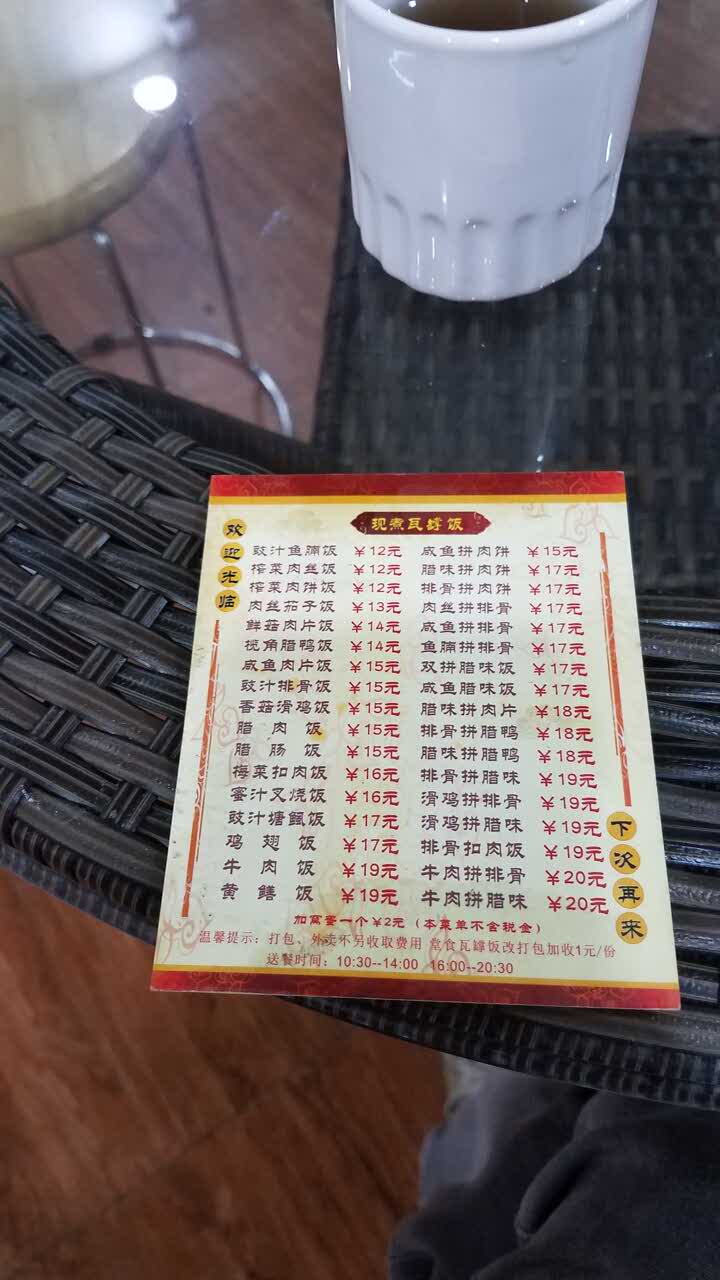 现煮瓦罉饭
欢迎光临
豉汁鱼腩饭 ¥12元 咸鱼拼肉饼 ¥15元
榨菜肉丝饭 ¥12元 腊味拼肉饼 ¥17元
榨菜肉饼饭 ¥12元 排骨拼肉饼 ¥17元
肉丝茄子饭 ¥13元 肉丝拼排骨 ¥17元
鲜菇肉片饭 ¥14元 咸鱼拼排骨 ¥17元
榄角腊鸭饭 ¥14元 鱼腩拼排骨 ¥17元
咸鱼肉片饭 ¥15元 双拼腊味饭 ¥17元
豉汁排骨饭 ¥15元 咸鱼腊味饭 ¥17元
香菇滑鸡饭 ¥15元 腊味拼肉片 ¥18元
腊肉饭 ¥15元 排骨拼腊鸭 ¥18元
腊肠饭 ¥15元 腊味拼腊鸭 ¥18元
梅菜扣肉饭 ¥16元 排骨拼腊味 ¥19元
蜜汁叉烧饭 ¥16元 滑鸡拼排骨 ¥19元
豉汁塘虱饭 ¥17元 滑鸡拼腊味 ¥19元
鸡翅饭 ¥17元 排骨扣肉饭 ¥19元
牛肉饭 ¥19元 牛肉拼排骨 ¥20元
黄鳝饭 ¥19元 牛肉拼腊味 ¥20元
下次再来
加窝蛋一个¥2元（本菜单不含税金）
温馨提示：打包、外卖不另收取费用 堂食瓦罉饭改打包加收1元/份
送餐时间：10:30--14:00 16:00--20:30